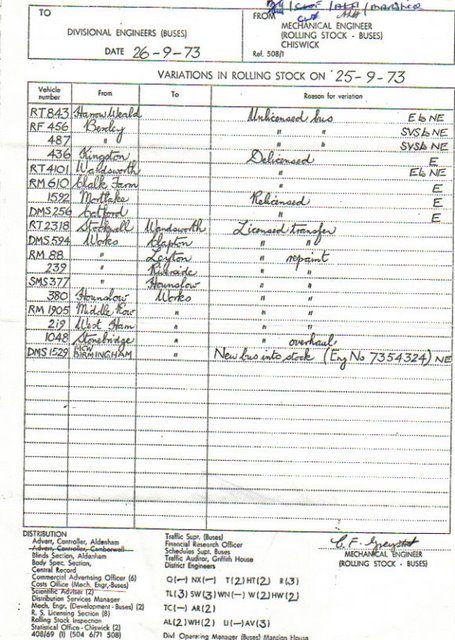 TO
DIVISIONAL ENGINEERS (BUSES)
DATE 26-9-73
FROM
MECHANICAL ENGINEER
(ROLLING STOCK - BUSES)
CHISWICK
Ref. 508/1
VARIATIONS IN ROLLING STOCK ON 25-9-73
Vehicle number From To Reason for variation
RT 843 Harrow Weald Unlicensed bus Eb NE
RF 456 Bexley " " SVSb NE
487 " " " SVSb NE
436 Kingston Delicensed E
RT 4101 Wandsworth " Eb NE
RM 610 Chalk Farm " E
1592 Mortlake Relicensed E
DMS 256 Catford " E
RT 2318 Stockwell Wandsworth Licensed transfer
DMS 594 Works Clapton " "
RM 88 " Leyton " repaint
239 " Riverside " "
SMS 377 " Hounslow " "
380 Hounslow Works " "
RM 1905 Middle Row " " "
219 West Ham " " "
1048 Stonebridge " " overhaul
DMS 1529 MCW BIRMINGHAM " New bus into stock (Eng No 7354324) NE
DISTRIBUTION
Advert, Controller, Aldenham
Advert, Controller, Camberwell
Blinds Section, Aldenham
Body Spec. Section,
Central Record
Commercial Advertising Officer (6)
Costs Office (Mech. Engr.-Buses)
Scientific Adviser (2)
Distribution Services Manager
Mech. Engr. (Development - Buses) (2)
R. S. Licensing Section (8)
Rolling Stock Inspection
Statistical Office - Chiswick (2)
408/69 (1) (504 6/71 508)
Traffic Supt. (Buses)
Financial Research Officer
Schedules Supt. Buses
Traffic Auditor, Griffith House
District Engineers
Q(-) NX(-) T(2) HT(2) R(3)
TL(3) SW(3) WN(-) W(2) HW(2)
TC(-) AR(2)
AL(2) WH(2) U(-) AV(3)
Divl. Operating Manager (Buses) Mansion House
MECHANICAL ENGINEER
(ROLLING STOCK - BUSES)